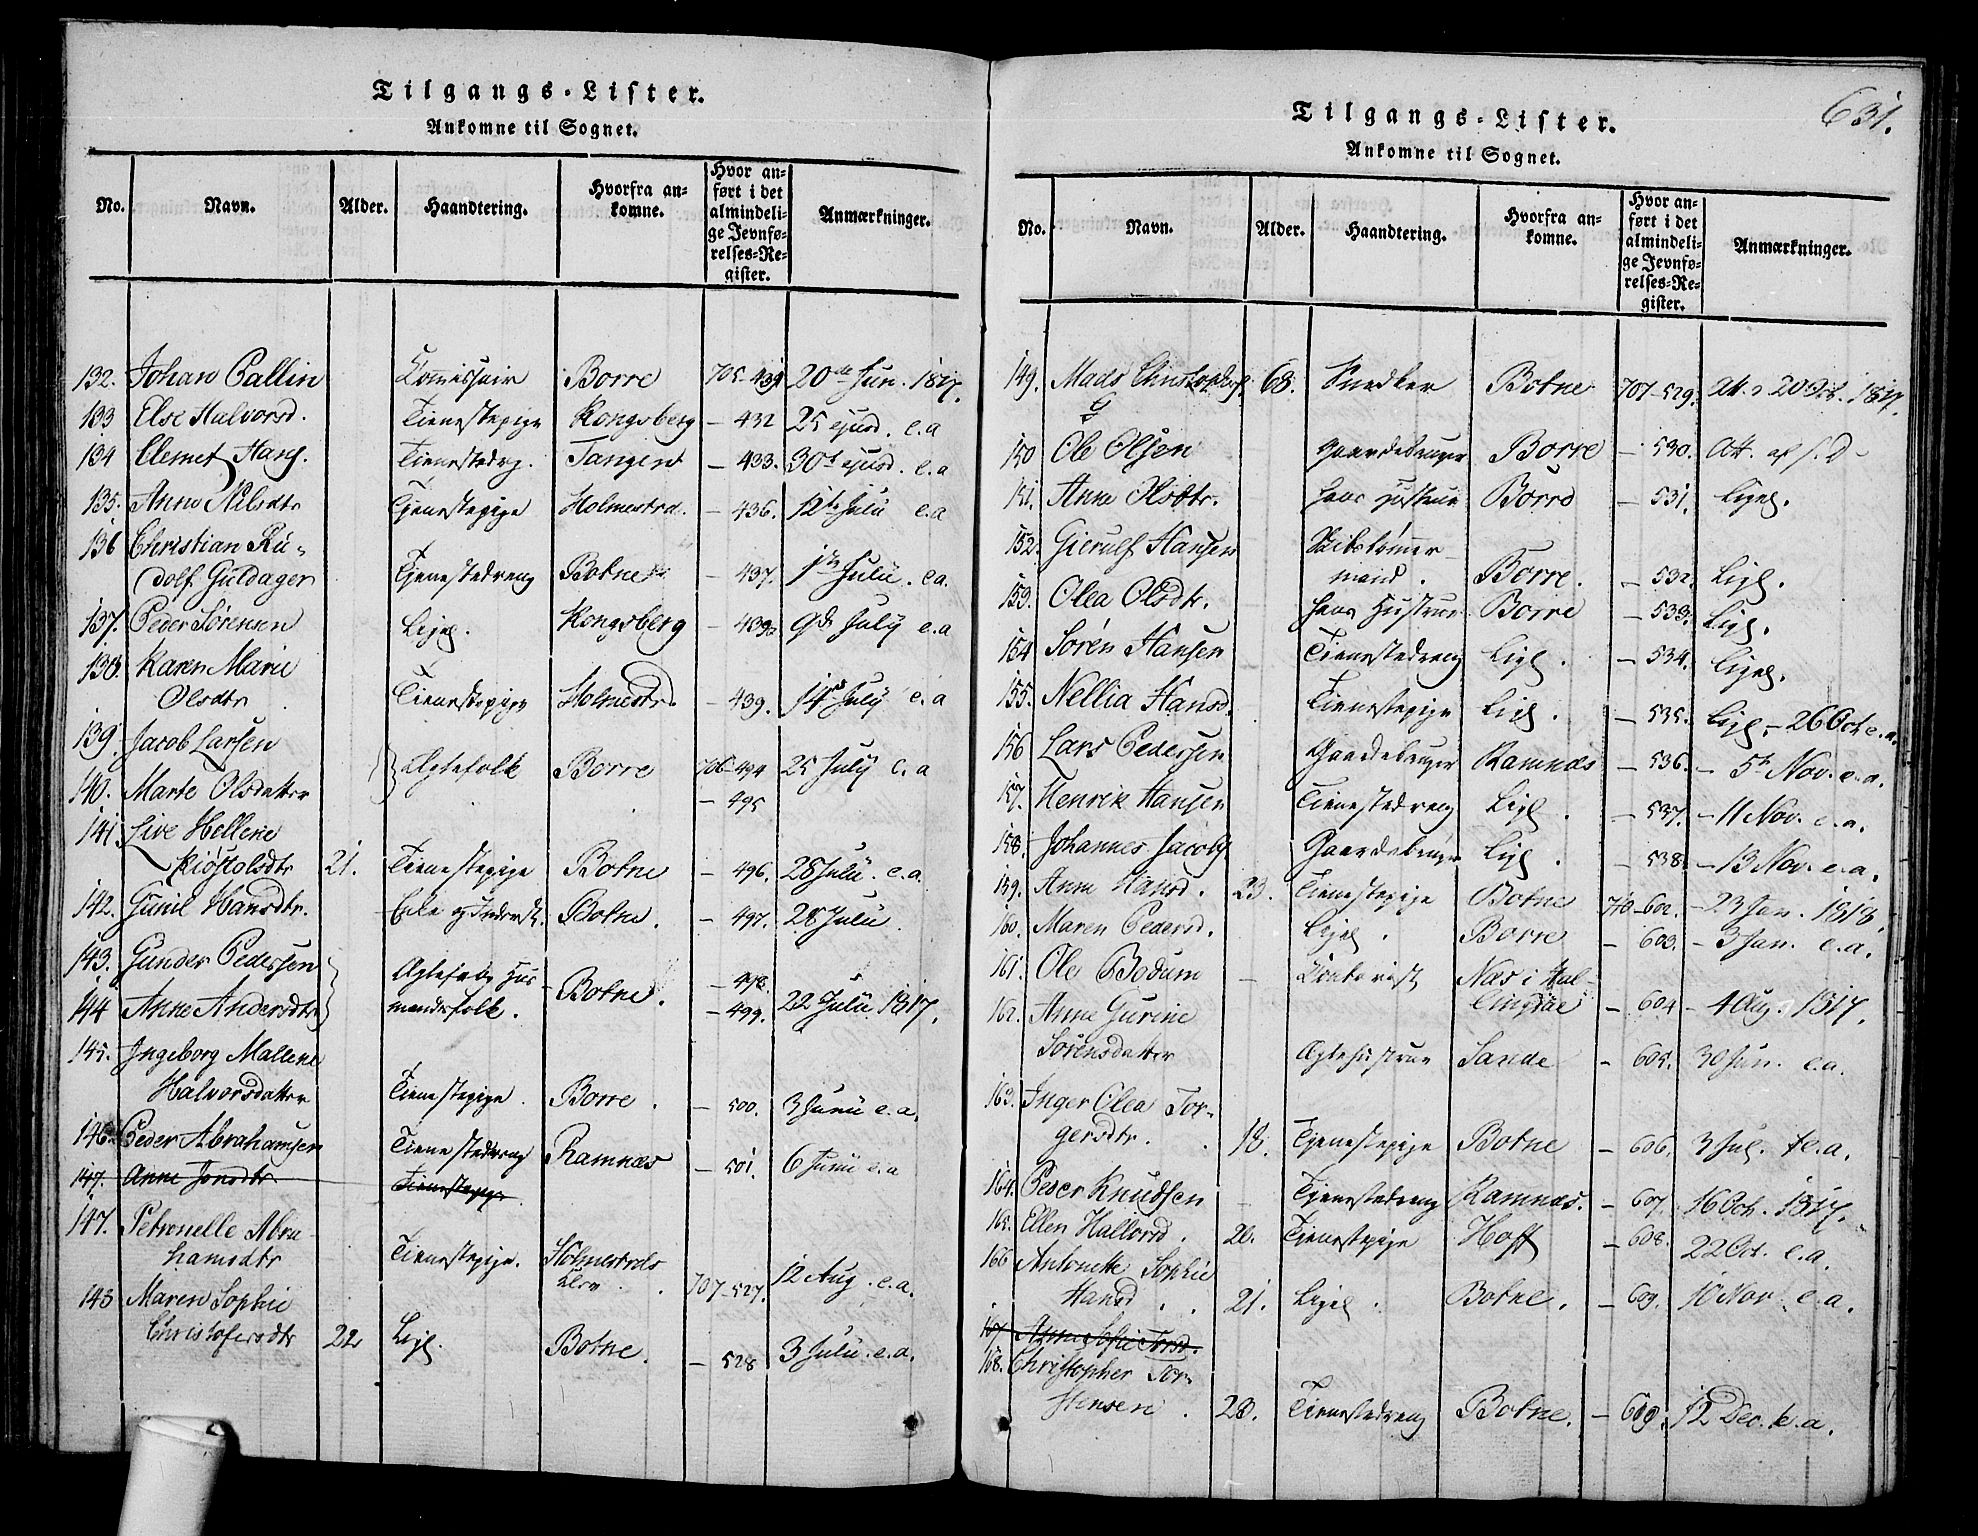 Tilgangs-Lister.
Ankomne til Sognet.
No. Navn. Alder. Haandtering. Hvorfra ankomne. Hvor anført i det almindelige Jevnførelses-Register. Anmærkninger.
132. Johan Callin Borre 705-431 20de Jun. 1817.
133 Else Halvorsd. Tienestepige Kongsberg - 432 25 ejusd. e.a
134 Clemet Hans. Tienestedrg. Tangen - 433. 30t ejusd. e.a
135. Anne Nilsdtr Tjenestepige Holmestrd. - 436. 12te Julii e.a
136 Christian Ru-
dolf Guldager Tjenestedreng Botne - 437. 1ste Julii. e.a.
137. Peder Sørensen Ligel. Kongsberg - 438 9de July e.a
138. Karen Marie
Olsdtr Tienestepige Holmestrd - 439. 14de July e.a
139. Jacob Larsen
Ægtefolk Borre 706-494 25 July e.a
140. Marte Olsdatter - 495
141. Live Hellene
Kiøstolsdtr 21. Tienestepige Botne - 496. 28 Julii. e.a.
142. Gunil Hansdtr. Enke og Inderst. Botne. - 497. 28 Julii.
143. Gunder Pedersen Ægtefolk Hus- - 498.
144 Anne Andersdtr mandsfolk. Botne. - 499. 22 Julii 1817.
145. Ingeborg Mallene
Halvorsdatter Tienestepige. Borre. - 500. 3 Junii e.a.
146. Peder Abrahamsen Tienestedreng Ramnæs - 501. 6 Junii e.a
147. Anne Jonsdtr. Tienestepige
147. Petronelle Abra-
hamsdtr Tienestepige. Holmestrds 707-527. 12 Aug. e.a.
148 Maren Sophie
Christofersdtr 22 Ligl. Botne. - 528 3 Julii. e.a.
631.
Tilgangs-Lister.
Ankomne til Sognet.
No. Navn. Alder. Haandtering. Hvorfra ankomne. Hvor anført i det almindelige Jevnførelses-Register. Anmærkninger.
149. Mads Christophers. 68. Snedker Botne 707-529. Att. 20 1817.
150 Ole Olsen Gaardebruger Borre - 530. Att. af s.D -
151. Anne Olsdtr. hans Hustrue Borre - 531. Ligel.
152. Gierulf Hansen Skibstømmer-
mand. Borre. - 532. Ligl.
153. Olea Olsdtr. hans Hustrue Borre - 533. Ligl.
154 Sørén Hansen Tienestedreng Ligl. - 534. Ligel.
155. Nellia Hansd. Tienestepige Ligl. - 535. Ligl. - 26 Oct e.a.
156 Lars Pedersen Gaardebruger Ramnæs - 536. - 5te Nov. e.a.
157. Henrik Hansen Tienestedreng Ligl. - 537. - 11 Nov. e.a.
158. Johannes Jacobs Gaardebruger Ligl. - 538 - 13 Nov. e.a.
159. Anne Hansd. 23. Tienestepige Botne 710-602. - 23 Jan. 1818.
160. Maren Pedersd. Ligel. Borre - 603. - 3 Jan. e.a.
161. Ole Bodum - Næs i Hal-
162. Anne Gurine lingdal - 604 - 4 Aug. 1817.
Sørensdatter Ægtehustrue Sande - 605. 30 Jun. e.a.
163. Inger Olea Tor-
gersdtr. 18. Tjenestepige Botne - 606. 3 Jul. e.a.
164. Peder Knudsen - Tjenestedreng Ramnæs. - 607. 16 Oct. 1817.
165. Ellen Hallvorsd. 20. Tjenestepige Hoff - 608. 22 Oct. e.a.
166 Antonette Sophie
Hansd. 21. Ligel. Botne. - 609. 10 Nov. e.a.
167 Anne Sofie Torsd.
168. Christopher Tor-
stensen. 28. Tienestedreng Botne. - 609. 12 Dec. e.a.